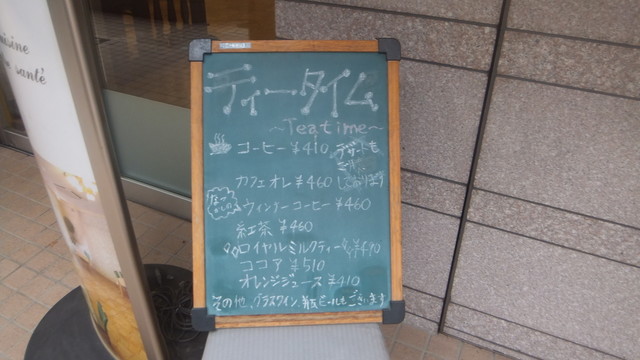 isine
santé
ティータイム
~Teatime~
コーヒー ¥410
デザートも
カフェオレ ¥460
ウィンナーコーヒー ¥460
紅茶 ¥460
ロイヤルミルクティー ¥490
ココア ¥510
オレンジジュース ¥410
その他、グラスワイン、ビールもございます